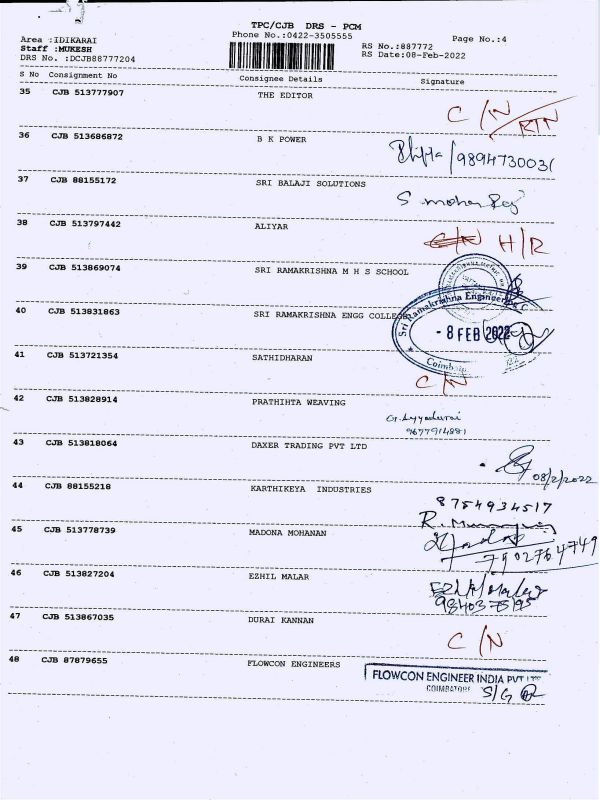 TPC/CJB DRS - PCM
Area :IDIKARAI Phone No.:0422-3505555 Page No.:4
Staff :MUKESH RS No.:887772
DRS No. :DCJB88777204 RS Date:08-Feb-2022
S No Consignment No Consignee Details Signature
35 CJB 513777907 THE EDITOR
C/N RTN
36 CJB 513686872 B K POWER
/9894730031
37 CJB 88155172 SRI BALAJI SOLUTIONS
S mohan Raj
38 CJB 513797442 ALIYAR
C/N H/R
39 CJB 513869074 SRI RAMAKRISHNA M H S SCHOOL
40 CJB 513831863 SRI RAMAKRISHNA ENGG COLLEGE
Sri Ramakrishna Engineering
- 8 FEB 2022
Coimb
41 CJB 513721354 SATHIDHARAN
C/N
42 CJB 513828914 PRATHIHTA WEAVING
9677914881
43 CJB 513818064 DAXER TRADING PVT LTD
08/2/2022
44 CJB 88155218 KARTHIKEYA INDUSTRIES
8754934517
45 CJB 513778739 MADONA MOHANAN
7902764749
46 CJB 513827204 EZHIL MALAR
Ezhil Malar
9840375195
47 CJB 513867035 DURAI KANNAN
C/N
48 CJB 87879655 FLOWCON ENGINEERS
FLOWCON ENGINEER INDIA PVT LTD
COIMBATORE S/G